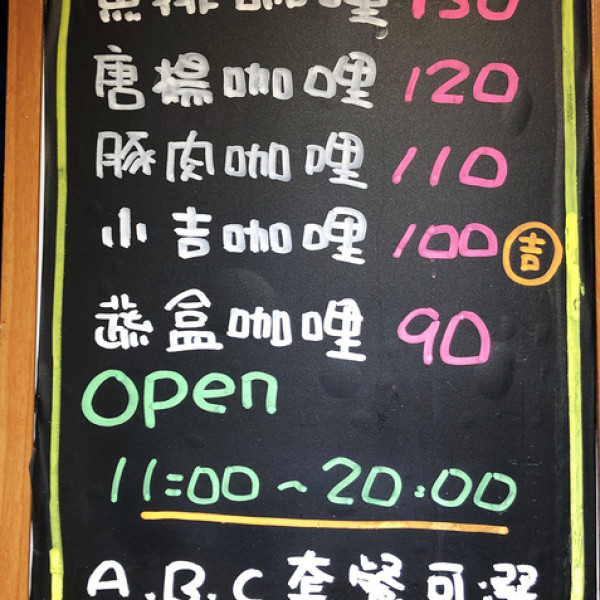 魚排咖哩 130
唐揚咖哩 120
豚肉咖哩 110
小吉咖哩 100 吉
蔬盒咖哩 90
open
11:00~20:00
A.B.C套餐可選